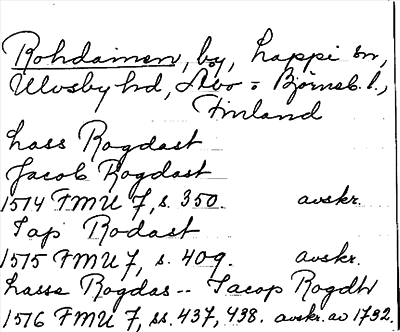 Rohdainen, by, Lappi sn,
Ulvsby hd, Åbo o Björneb. l.,
Finland
Lass Rogdast
Jacob Rogdast
1514 FMU 7, s. 350. avskr.
Jap Rodast
1515 FMU 7, s. 409. avskr.
Lasse Rogdas -- Jacop Rogdh
1516 FMU 7, ss. 437, 438. avskr. av 1792.